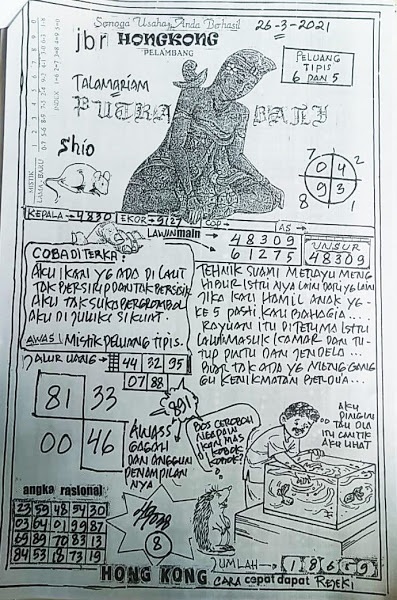 Semoga Usaha Anda Berhasil
26-3-2021
jbr HONGKONG
PELAMBANG
PELUANG
TIPIS
6 DAN 5
TALAMARIAM
PUTRA BALI
Shio
MISTIK
LAMA - BARU
INDEX
7 2
0 4
9 3
8 1
KEPALA → 4830 EKOR → 9127 COP → AS →
LAWAN main
48309
61275
UNSUR
48309
COBA DITERKA :
AKU IKAN YG ADA DI LAUT
TAK BERSIRIP DAN TAK BERSISIK
AKU TAK SUKA BERGEROMBOL
AKU DI JULUKI SI KUAT.
AWAS! MISTIK PELUANG TIPIS.
TEHNIK SUAMI MERAYU MENG
HIBUR ISTRI NYA LAIN DARI YG LAIN
JIKA KAU HAMIL ANAK YG
KE 5 PASTI KAU BAHAGIA...
RAYUAN ITU DITERIMA ISTRI
LALU MASUK KAMAR DAN TU-
TUP PINTU DAN JENDELA...
BIAR TAK ADA YG MENGGANG
GU KENIKMATAN BERDUA...
JALUR UANG → 44 32 95
07 88
81 33
00 46
891
AWASS
GAGAH
DAN ANGGUN
PENAMPILAN
NYA
BOS CEROBOH
NGAPAIN
IKAN MAS
DI KOBOK
KOBOK?
AKU
PINGIN
TAU DIA
ITU CANTIK
AKU LIHAT
angka rasional
23 59 48 54 30
03 64 01 99 87
69 89 70 83 13
84 53 18 73 19
8
JUMLAH → 1 8 6 9
HONG KONG CARA cepat dapat REJEKI